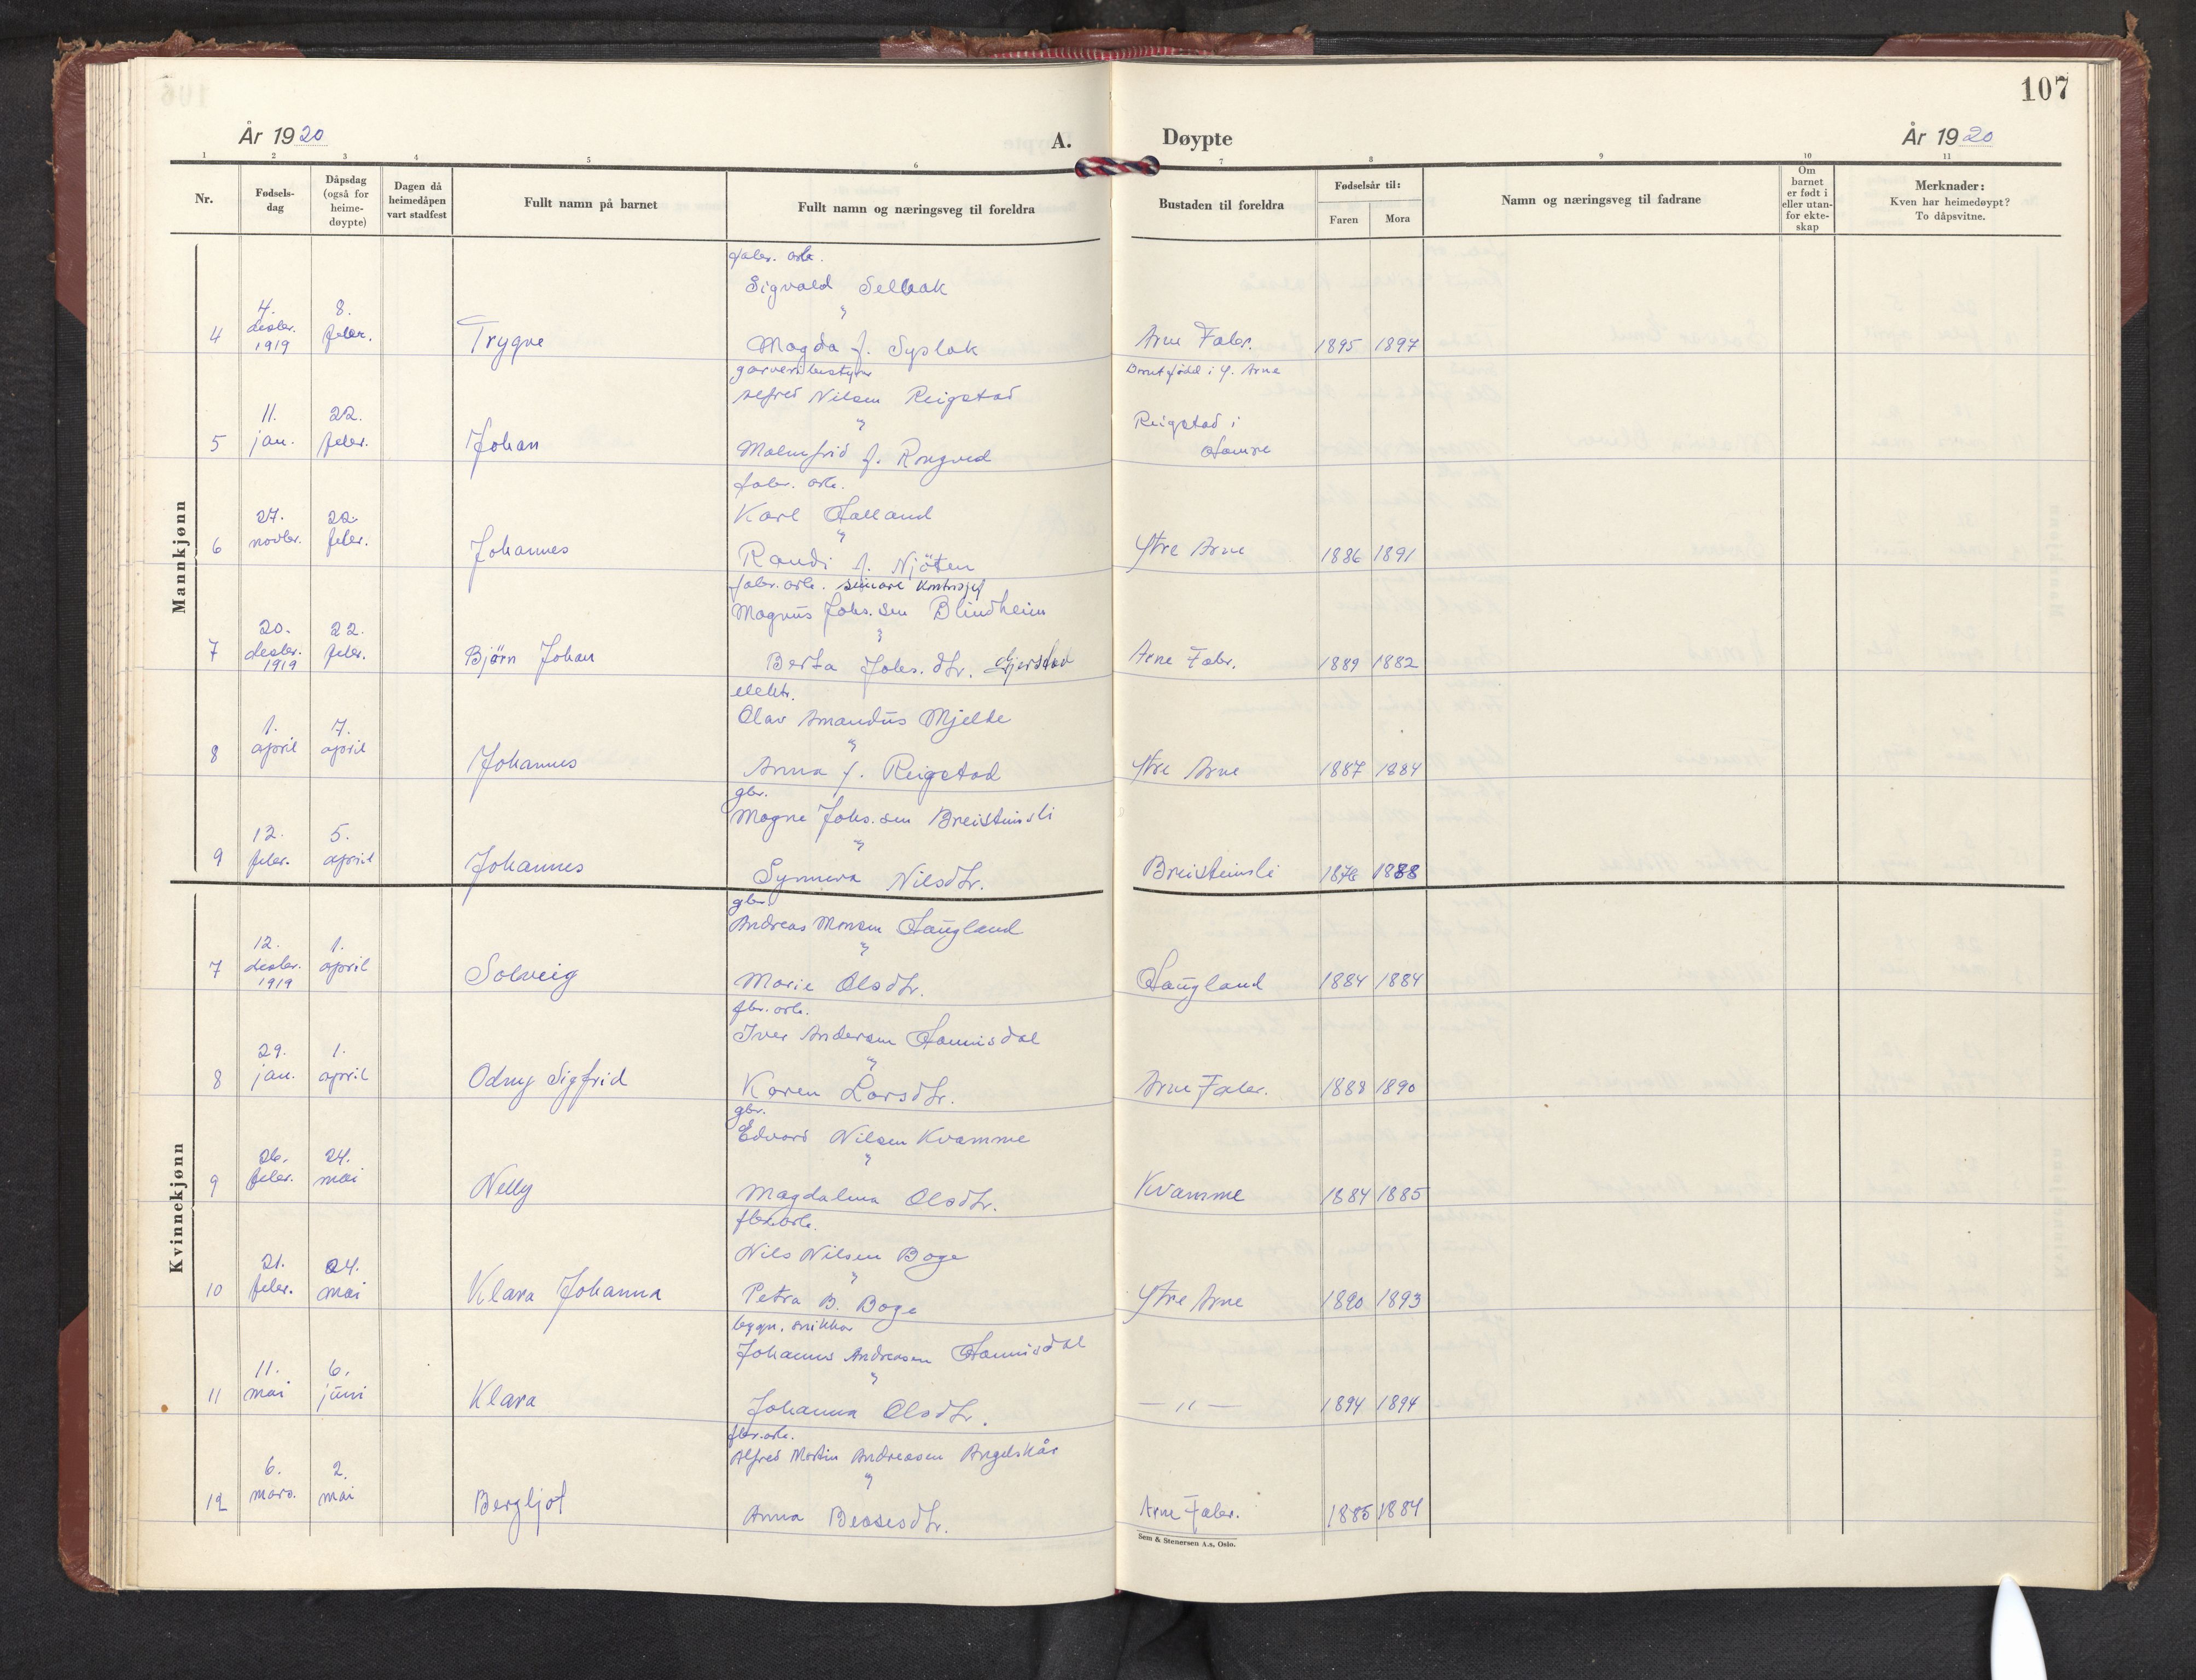 107
År 1920
A.
Døypte
År 1920
1 2 3 4 5 6 7 8 9 10 11
Nr.
Fødsels-
dag
Dåpsdag
(også for
heime-
døypte)
Dagen då
heimedåpen
vart stadfest
Fullt namn på barnet
Fullt namn og næringsveg til foreldra
Bustaden til foreldra
Fødselsår til:
Faren Mora
Namn og næringsveg til fadrane
Om
barnet
er født i
eller utan-
for ekte-
skap
Merknader:
Kven har heimedøypt?
To dåpsvitne.
Mannkjønn
fabr. arb.
Sigvald Selbak
"
4 4. desbr. 1919 8. febr. Trygve Magda f. Syslak Arne Fabr. 1895 1897
garveribestyrer
Barnet fødd i Y. Arne
Alfred Nilsen Reigstad
"
5 11. jan. 22. febr. Johan Malmfrid f. Rongved Reigstad i
Hamre
fabr. arb.
Karl Halland
"
6 27. novbr. 22. febr. Johannes Randi f. Njöten Ytre Arne 1886 1891
fabr. arb. seinare kontrasjef
Magnus Johs. sen Blindheim
"
7 20. desbr. 1919 22. febr. Bjørn Johan Berta Johs. dtr. Gjerstad Arne Fabr. 1889 1882
elektr.
Olav Amandus Mjelde
"
8 1. april 7. april Johannes Anna f. Reigstad Ytre Arne 1887 1884
gbr.
Magne Johs. sen Breisteinsli
"
9 12. febr. 5. april Johannes Synneva Nilsdtr. Breisteinsli 1876 1888
Kvinnekjønn
gbr.
Andreas Monsen Haugland
"
7 12. desbr. 1919 1. april Solveig Marie Olsdtr. Haugland 1884 1884
fbr. arb.
Iver Andersen Hannisdal
"
8 29. jan. 1. april Odny Sigfrid Karen Larsdtr. Arne Fabr. 1888 1890
gbr.
Edvard Nilsen Kvamme
"
9 26. febr. 24. mai Nelly Magdalena Olsdtr. Kvamme 1884 1885
fbr. arb.
Nils Nilsen Boge
"
10 21. febr. 24. mai Klara Johanna Petra B. Boge Ytre Arne 1890 1893
bygn. snikkar
Johannes Andreasen Hannisdal
"
11 11. mai 6. juni Klara Johanna Olsdtr. — " — 1894 1894
fbr. arb.
Alfred Martin Andreasen Angelskår
"
12 6. mars. 2. mai Bergljot Anna Beasesdtr. Arne Fabr. 1885 1884
Sem & Stenersen A.s, Oslo.